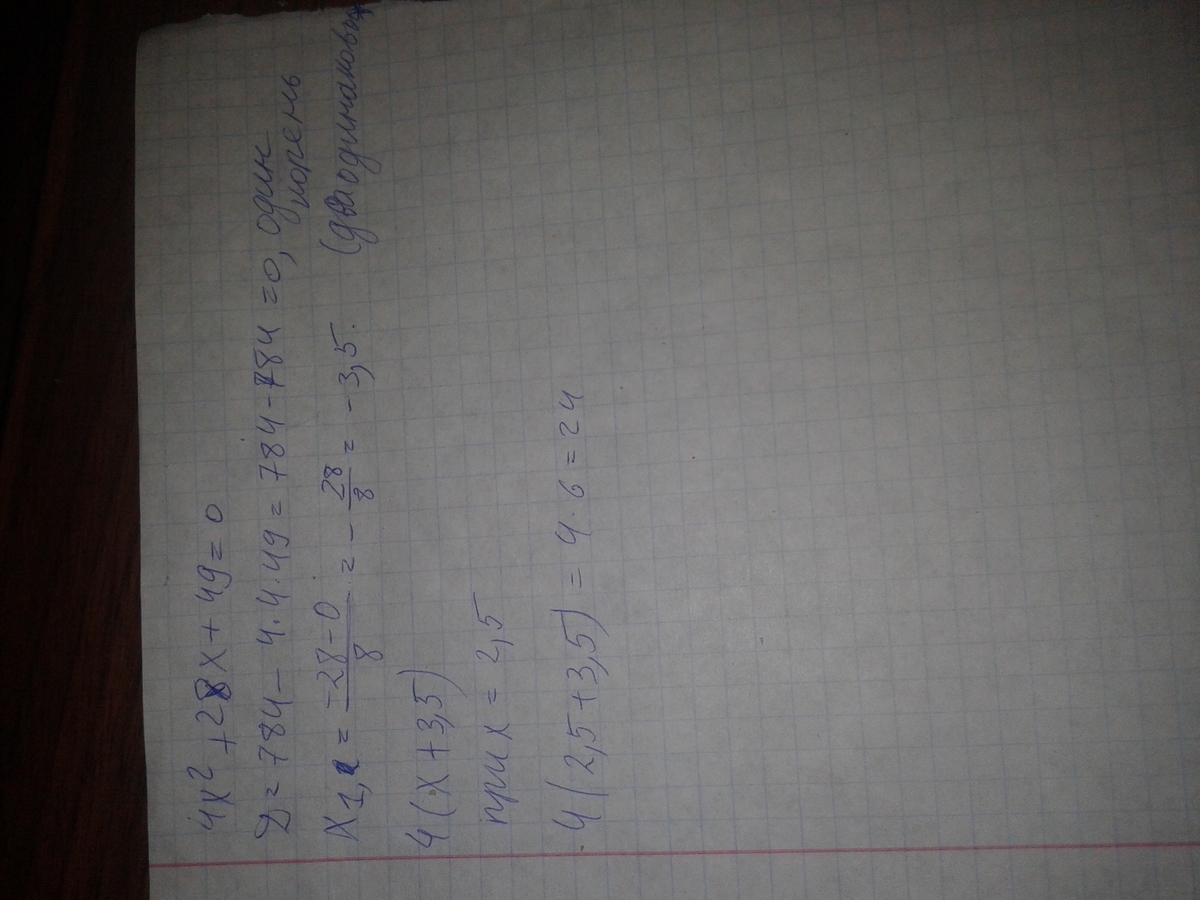 4x² + 28x + 49 = 0
D = 784 - 4·4·49 = 784 - 784 = 0, один
корень
x₁,₂ = (-28-0)/8 = - 28/8 = - 3,5. (два одинаковых
4(x+3,5)
при x = 2,5
4(2,5+3,5) = 4·6 = 24